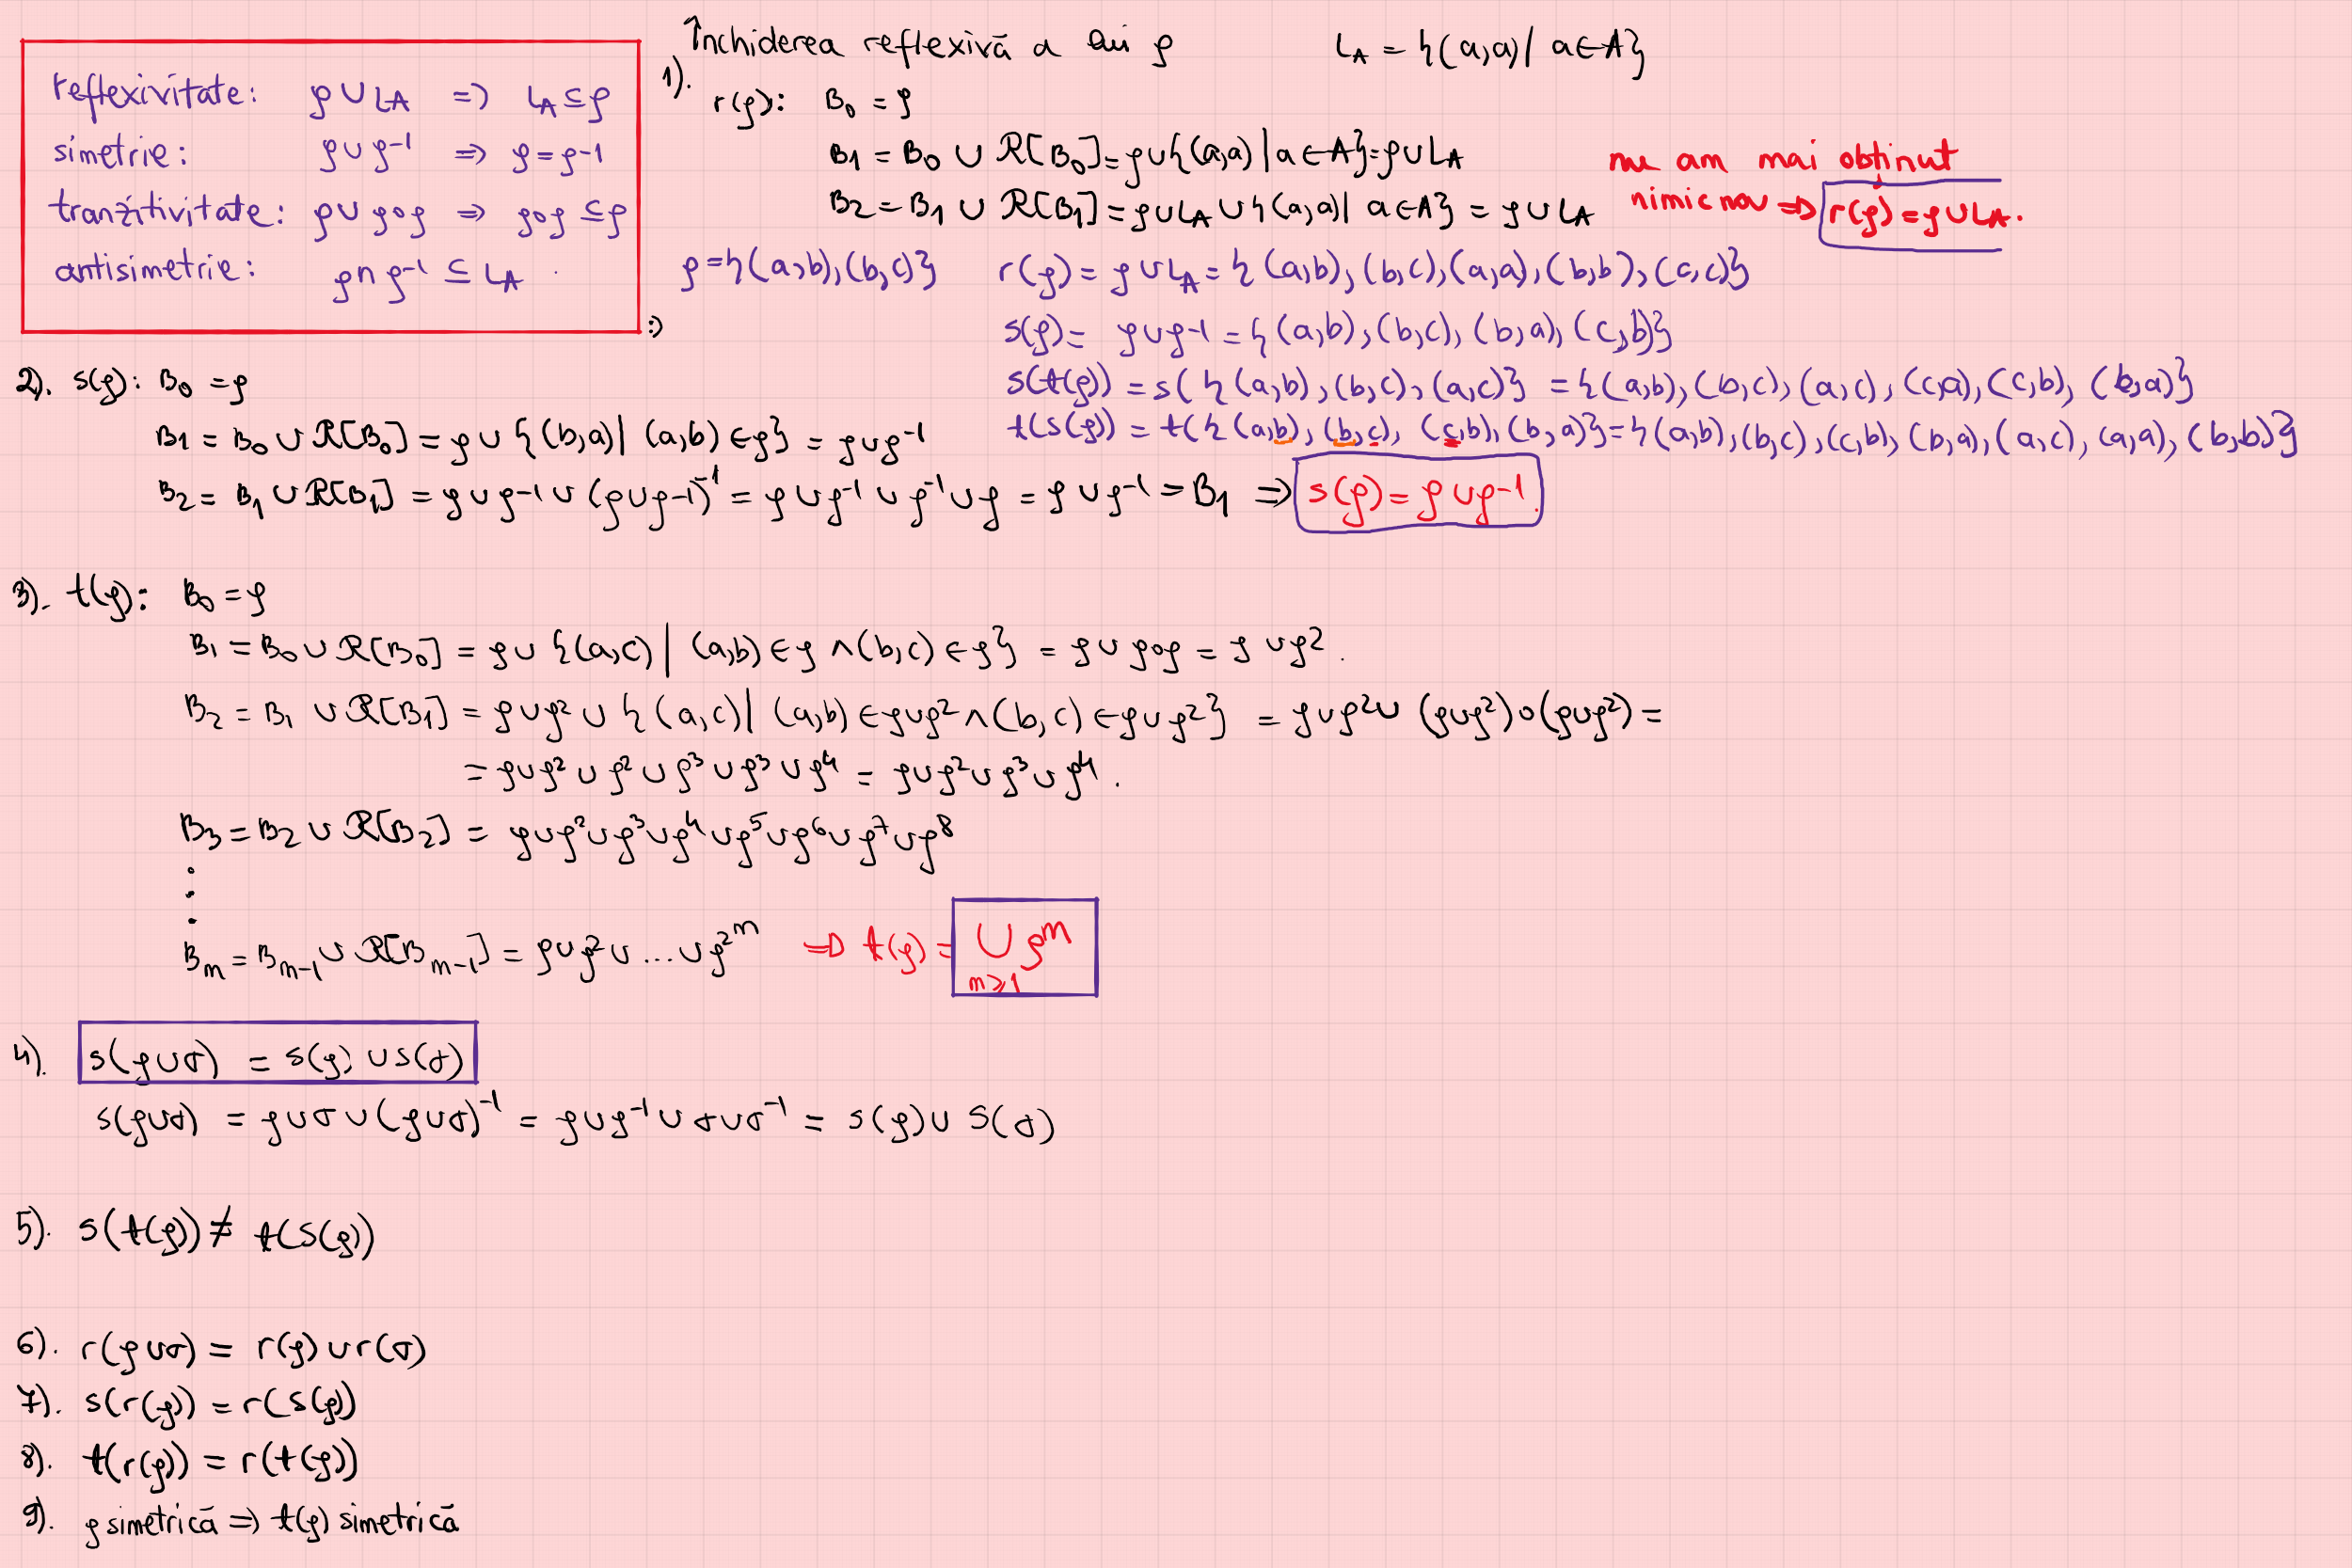 reflexivitate: ρ ∪ ιA => ιA ⊆ ρ
simetrie: ρ ∪ ρ⁻¹ => ρ = ρ-1
tranzitivitate: ρ ∪ ρ∘ρ => ρ∘ρ ⊆ ρ
antisimetrie: ρ ∩ ρ⁻¹ ⊆ ιA .
:)
Închiderea reflexivă a lui ρ ιA = {(a,a) | a ∈ A}
1). r(ρ): B₀ = ρ
B1 = B₀ ∪ R[B₀] = ρ ∪ {(a,a) | a ∈ A} = ρ ∪ ιA
B2 = B1 ∪ R[B1] = ρ ∪ ιA ∪ {(a,a) | a ∈ A} = ρ ∪ ιA
nu am mai obținut
nimic nou => r(ρ) = ρ ∪ ιA.
ρ = {(a,b), (b,c)} r(ρ) = ρ ∪ ιA = {(a,b), (b,c), (a,a), (b,b), (c,c)}
s(ρ) = ρ ∪ ρ-1 = {(a,b), (b,c), (b,a), (c,b)}
s(t(ρ)) = s({(a,b), (b,c), (a,c)} = {(a,b), (b,c), (a,c), (c,a), (c,b), (b,a)}
t(s(ρ)) = t({(a,b), (b,c), (c,b), (b,a)} = {(a,b), (b,c), (c,b), (b,a), (a,c), (a,a), (b,b)}
2). s(ρ): B₀ = ρ
B1 = B₀ ∪ R[B₀] = ρ ∪ {(b,a) | (a,b) ∈ ρ} = ρ ∪ ρ⁻¹
B2 = B1 ∪ R[B1] = ρ ∪ ρ-1 ∪ (ρ ∪ ρ-1)⁻¹ = ρ ∪ ρ⁻¹ ∪ ρ⁻¹ ∪ ρ = ρ ∪ ρ⁻¹ = B1 => s(ρ) = ρ ∪ ρ-1.
3). t(ρ): B₀ = ρ
B1 = B₀ ∪ R[B₀] = ρ ∪ {(a,c) | (a,b) ∈ ρ ∧ (b,c) ∈ ρ} = ρ ∪ ρ∘ρ = ρ ∪ ρ².
B2 = B1 ∪ R[B1] = ρ ∪ ρ² ∪ {(a,c) | (a,b) ∈ ρ∪ρ² ∧ (b,c) ∈ ρ∪ρ²} = ρ ∪ ρ² ∪ (ρ∪ρ²)∘(ρ∪ρ²) =
= ρ ∪ ρ² ∪ ρ² ∪ ρ³ ∪ ρ³ ∪ ρ⁴ = ρ ∪ ρ² ∪ ρ³ ∪ ρ⁴.
B3 = B2 ∪ R[B2] = ρ ∪ ρ² ∪ ρ³ ∪ ρ⁴ ∪ ρ⁵ ∪ ρ⁶ ∪ ρ⁷ ∪ ρ⁸
⋮
Bm = Bm-1 ∪ R[Bm-1] = ρ ∪ ρ² ∪ ... ∪ ρ^2^m => t(ρ) = ∪ ρ^m
m⩾1
4). s(ρ∪σ) = s(ρ) ∪ s(σ)
s(ρ∪σ) = ρ ∪ σ ∪ (ρ∪σ)⁻¹ = ρ ∪ ρ⁻¹ ∪ σ ∪ σ⁻¹ = s(ρ) ∪ s(σ)
5). s(t(ρ)) ≠ t(s(ρ))
6). r(ρ∪σ) = r(ρ) ∪ r(σ)
7). s(r(ρ)) = r(s(ρ))
8). t(r(ρ)) = r(t(ρ))
9). ρ simetrică => t(ρ) simetrică